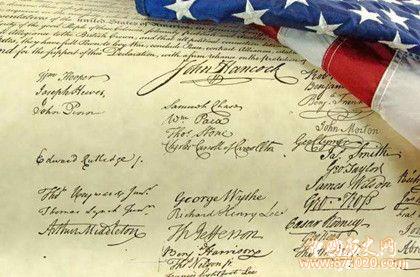 of the united States
to the British Crown, and that all political
they have full Power to levy War, conclude Peace, contract Alliances
And for the support of this Declaration, with a firm reliance on the protection
John Hancock
Wm Hooper
Joseph Hewes,
John Penn
Edward Rutledge /.
Thos Heyward Junr.
Thomas Lynch Junr.
Arthur Middleton
Samuel Chase
Wm Paca
Thos Stone
Charles Carroll of Carrollton
George Wythe
Richard Henry Lee
Th Jefferson
Benj Harrison
Thos Nelson jr.
Francis Lightfoot Lee
Rob
Benjamin
John Morton
Geo Clymer
Jas Smith
Geo Taylor
James Wilson
Geo Ross
Caesar Rodney
Geo Read
Tho M
中国历史网
y78020.com